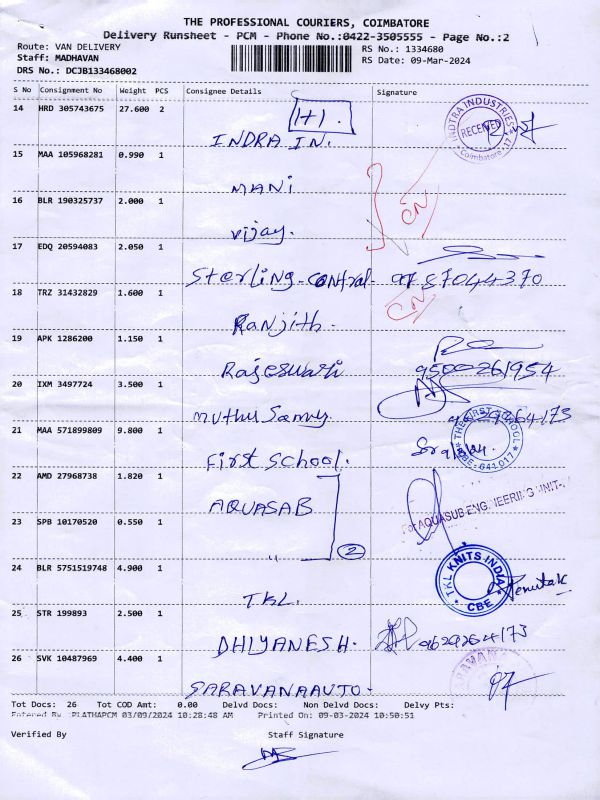 THE PROFESSIONAL COURIERS, COIMBATORE
Delivery Runsheet - PCM - Phone No.:0422-3505555 - Page No.:2
Route: VAN DELIVERY
RS No.: 1334680
Staff: MADHAVAN
RS Date: 09-Mar-2024
DRS No.: DCJB133468002
S No Consignment No Weight PCS Consignee Details Signature
14 HRD 305743675 27.600 2
1+1.
INDRA IN.
INDTRA INDUSTRIES RECEIVED Coimbatore - 17
15 MAA 105968281 0.990 1
MANI
16 BLR 190325737 2.000 1
CN
vijay.
17 EDQ 20594083 2.050 1
Sterling-control- 9787044370
18 TRZ 31432829 1.600 1
CN
Ranjith.
19 APK 1286200 1.150 1
Rajeswari 9500261954
20 IXM 3497724 3.500 1
muthu Samy 9629264173
21 MAA 571899809 9.800 1
First School.
THE FIRST SCHOOL CBE-641 017
22 AMD 27968738 1.820 1
AQUASAB
For AQUASUB ENGINEERING UNIT-
23 SPB 10170520 0.550 1
" 2
24 BLR 5751519748 4.900 1
TKL.
TKL KNITS INDIA CBE
25 STR 199893 2.500 1
DHIYANESH. 9629264173
26 SVK 10487969 4.400 1
SARAVANAAUTO-
Tot Docs: 26 Tot COD Amt: 0.00 Delvd Docs: Non Delvd Docs: Delvy Pts:
Entered By PLATHAPCM 03/09/2024 10:28:48 AM Printed On: 09-03-2024 10:50:51
Verified By Staff Signature